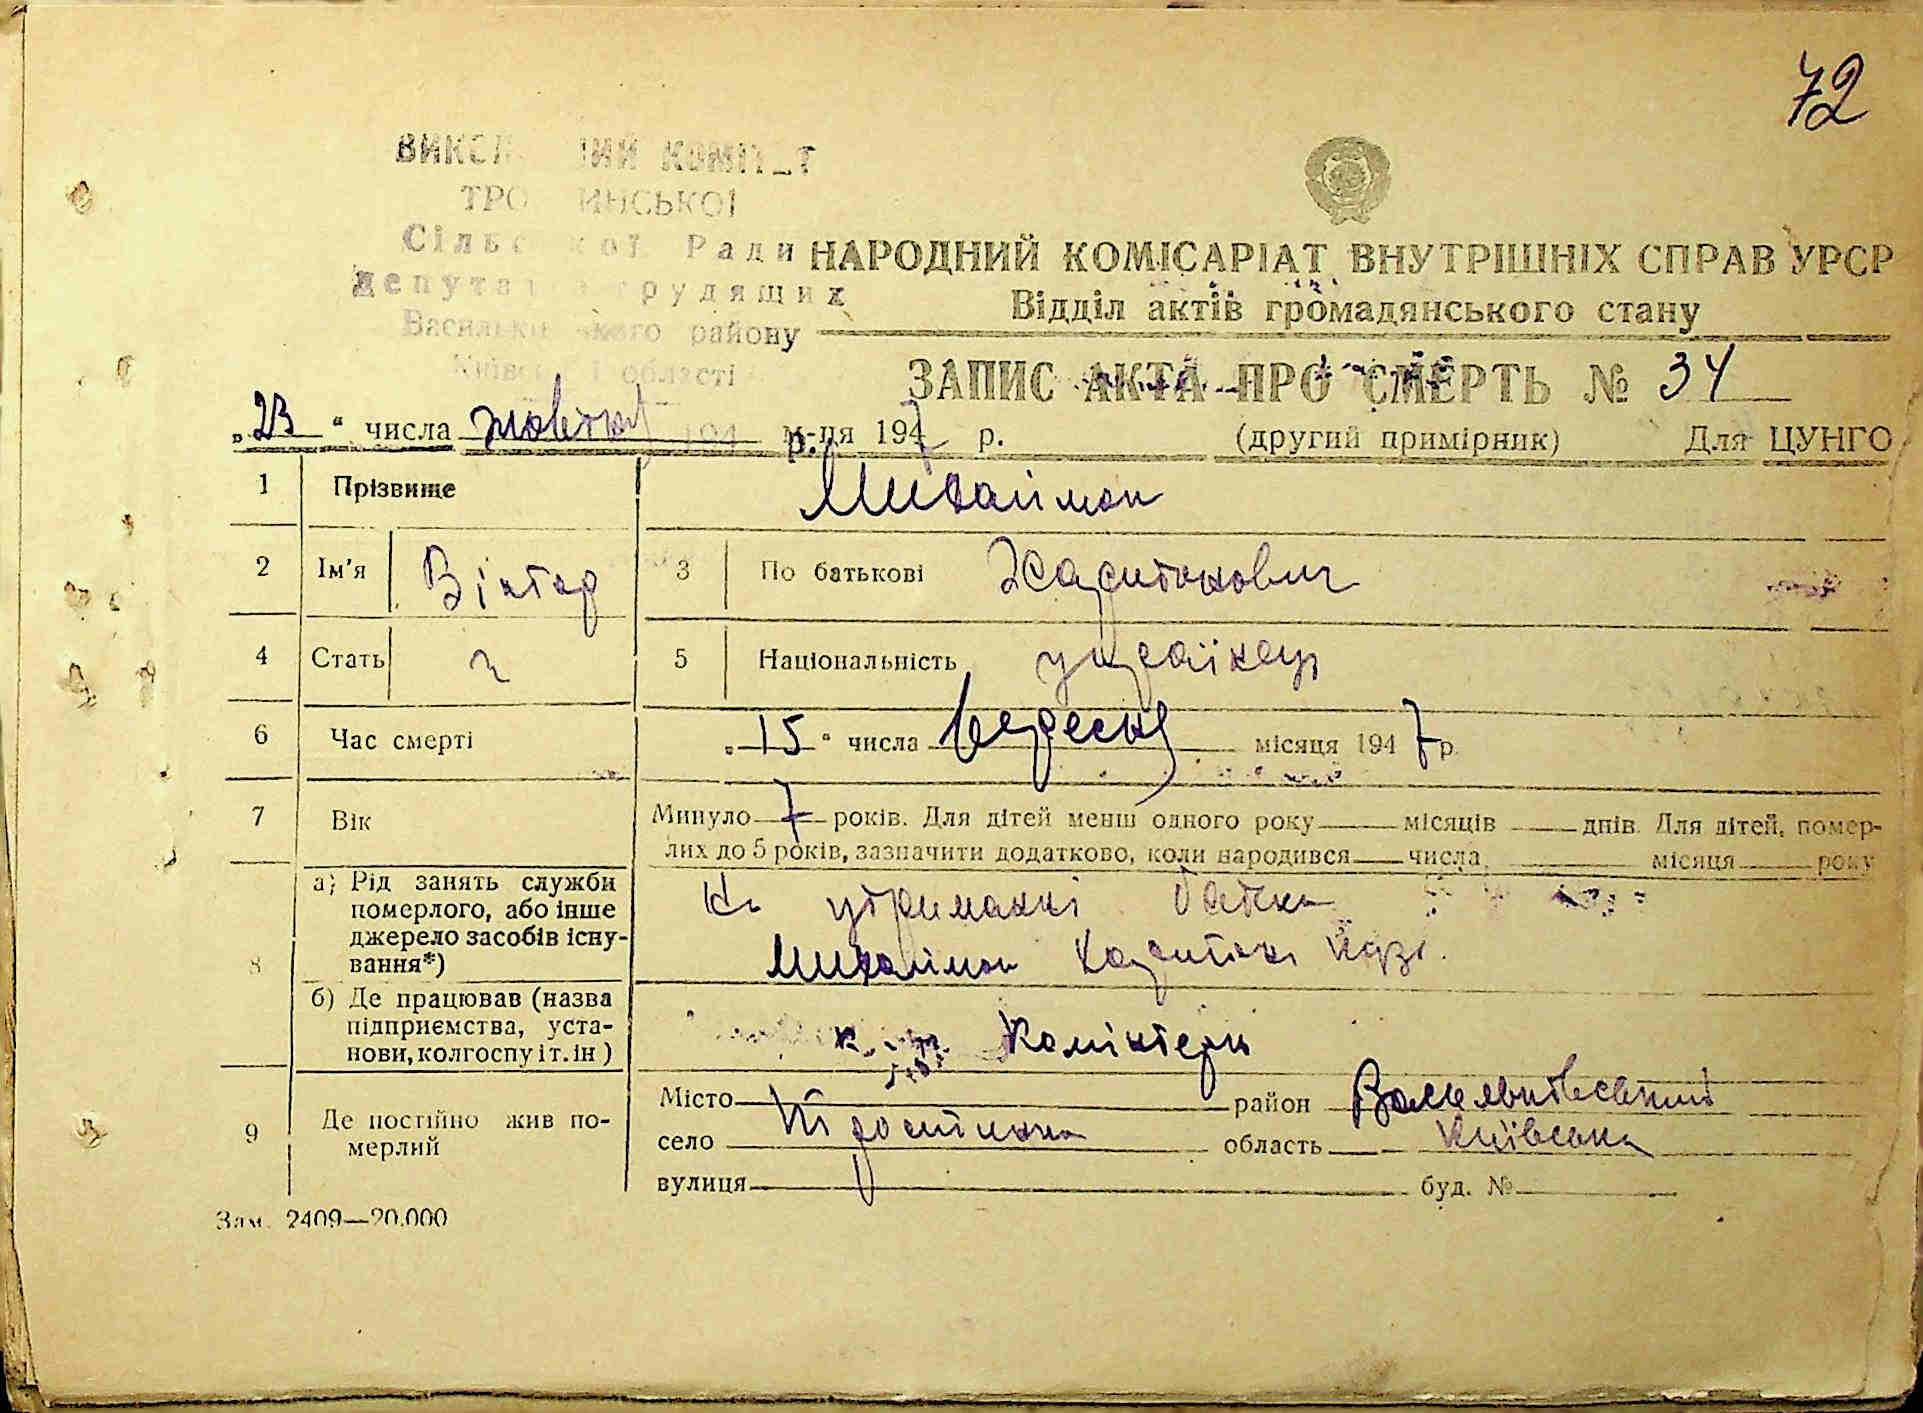 72
ВИКОНАВЧИЙ КОМІТЕТ
ТРО ИНСЬКОЇ
Сільської Ради
депутатів трудящих
Васильківського району
Київської області
НАРОДНИЙ КОМІСАРІАТ ВНУТРІШНІХ СПРАВ УРСР
Відділ актів громадянського стану
ЗАПИС АКТА ПРО СМЕРТЬ № 34
„23“ числа жовтня м-ця 1947 р. (другий примірник) Для ЦУНГО
1 Прізвище Михаймон
2 Ім'я Віктор 3 По батькові Харитонович
4 Стать ч 5 Національність українець
6 Час смерті „15“ числа вересня місяця 1947 р.
7 Вік Минуло 7 років. Для дітей менш одного року місяців днів. Для дітей, помер-
лих до 5 років, зазначити додатково, коли народився числа місяця року
8 а) Рід занять служби
померлого, або інше
джерело засобів існу-
вання*)
На утриманні батька
Михаймон Харитона
б) Де працював (назва
підприємства, уста-
нови, колгоспу і т. ін)
Комінтерн
9 Де постійно жив по-
мерлий
Місто район Васильківський
село область Київська
вулиця буд. №
Зам. 2409—20.000